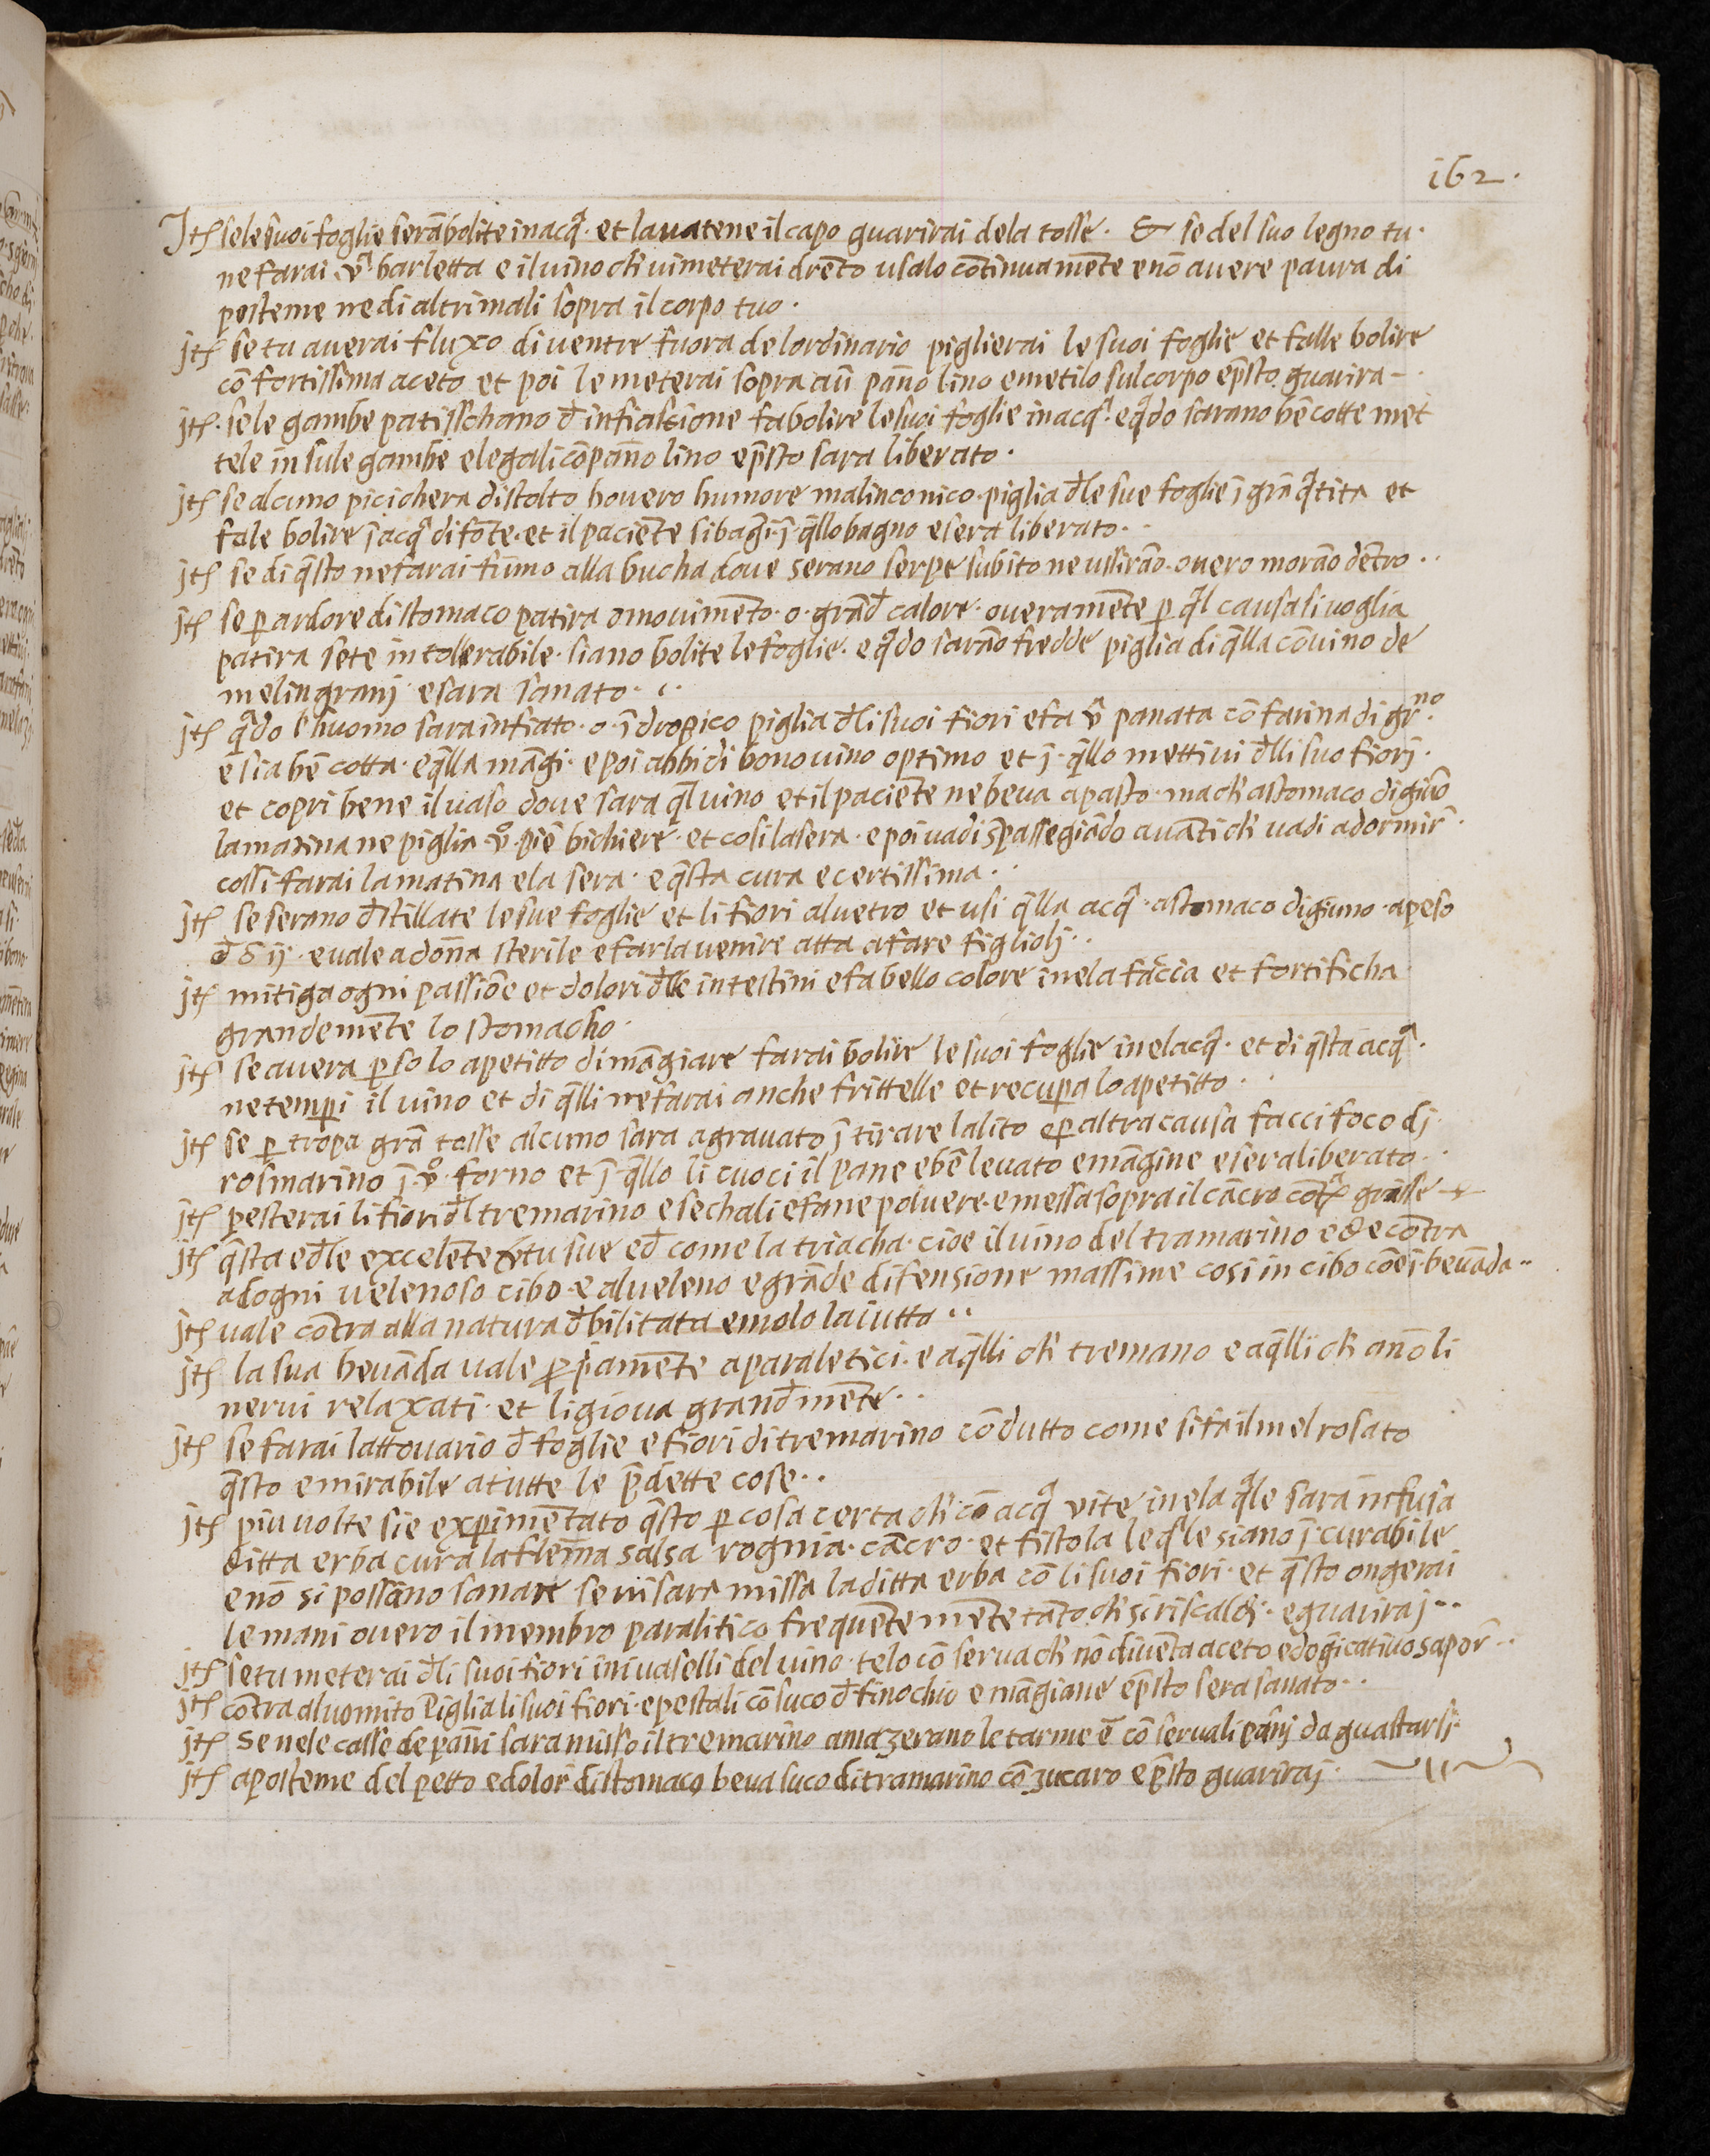 162.
Jtꝫ se le suoi foglie serā bolite in acq̄ · et lauatene il capo guarirai dela tosse · & se del suo legno tu ·
ne farai v̄ª barletta e il uino ch̄ ui meterai drēto usalo cōtinuamēte e nō auere paura di
posteme ne di altri mali sopra il corpo tuo ·
jtꝫ se tu auerai fluxo di uentre fuora de lordinario piglierai le suoi foglie et falle bolire
cō fortissima aceto et poi le meterai sopra a ū pāno lino e metilo sul corpo e p̄sto guarira –·
jtꝫ · se le gambe patisschano đ infiatione fa bolire le suoi foglie in acqª · e qªdo sarano bē cotte met
tele in su le gambe e legali cō pāno lino e p̄sto sara liberato ·
jtꝫ se alcuno picichera di stolto houero humore malinconico · piglia đle sue foglie ī grā qªtita et
fale bolire ī acqª di fōte · et il paciēte si bagni · ī q̄llo bagno e sera liberato ··
jtꝫ se di q̄sto ne farai fūmo alla bucha doue serano serpe subito ne ussirāo · ouero morāo dētro ··
jtꝫ se ꝑ ardore di stomaco patira o mouimēto · o · grāđ calore · oueramēte ꝑ qªl causa si uoglia
patira sete in tollerabile · siano bolite le foglie · e qªdo sarāo fredde piglia di q̄lla cō uino de
melingranj e sara sanato · ··
jtꝫ qªdo l huomo sara infiato · o · ī dropico piglia đli suoi fiori e fa v̄ª panata cō farina di gr̄no ·
e sia bē cotta · e q̄lla māgi · e poi abbi di bono uino optimo et ī · q̄llo mettiui đlli suo fiorj ·
et copri bene il uaso doue sara q̄l uino et il paciēte ne beua a pasto · ma ch̄ a stomaco digiūo
la matina ne piglia v̊ · piē bichiere · et cosi la sera · e poi uadi spassegiādo auāti ch̄ uadi a dormir̄ ·
cossi farai la matina e la sera · e q̄sta cura e certissima ··
jtꝫ se serano đstillate le sue foglie et li fiori al uetro et usi q̄lla acqª · a stomaco digiuno · a peso
đ ij · e uale a dōna sterile e farla uenire atta a fare figliolj ··
jtꝫ mitiga ogni passiōe et dolori đlle intestini e fa bello colore in ela faccia et fortificha
grandemēte lo stomacho ·
jtꝫ se auera ꝑso lo apetitto di māgiare farai bolire le suoi foglie in elacqª · et di q̄sta acqª ·
ne tempi il uino et di q̄lli ne farai anche frittelle et recuꝑa lo apetitto ·
jtꝫ se ꝑ tropa grā tosse alcuno sara agrauato ī tirare lalito o ꝑ altra causa facci foco dj ·
rosmarino ī · v̊ · forno et ī · q̄llo li cuoci il pane e bē leuato e māgine e sera liberato ··
jtꝫ pesterai li fiori đl tremarino e sechali e fane poluere · e messa sopra il cācro
jtꝫ q̄sta e đle excelēte sue come la triacha · cioe il uino del tramarino e cōtra
ad ogni uelenoso cibo · e al ueleno e grāde difensione massime cosi in cibo cōe ī · beuāda ··
jtꝫ uale cōtra alla natura đbilitata e molo la iutta ··
jtꝫ la sua beuāda uale ꝓpiamēte a paraletici · e a q̄lli ch̄ tremano e a q̄lli ch̄ anō li
nerui relaxati · et li gioua granđmēte ··
jtꝫ se farai lattouario đ foglie e fiori di tremarino cōdutto come si fa il mel rosato
q̄sto e mirabile a tutte le p̄dette cose ··
jtꝫ piu uolte sie exꝑimētato q̄sto ꝑ cosa certa ch̄ cō acqª vite in ela qªle sara infusa
ditta erba cura la flēma salsa rognia · cācro · et fistola le qªle siano ī curabile
e nō si possāno sanare se ui sara missa la ditta erba cō li suoi fiori · et q̄sto ongerai
le mani ouero il membro paralitico frequētemēte tāto ch̄ si riscaldj · e guariraj ··
jtꝫ se tu meterai đli suoi fiori in i uaselli del uino · te lo cō serua ch̄ nō diuēta aceto ed ogi catiuo sapor̄ ··
jtꝫ cōtra al uomito piglia li suoi fiori · e pestali cō suco đ finochio e māgiane e p̄sto sera sanato ··
jtꝫ se nele casse de pāni sara misso il tremarino amazerano le tarme ē cō serua li pānj da guastarsi ·
jtꝫ aposteme del petto e dolori di stomaco beua suco di tramarino cō zucaro e p̄sto guariraj ·